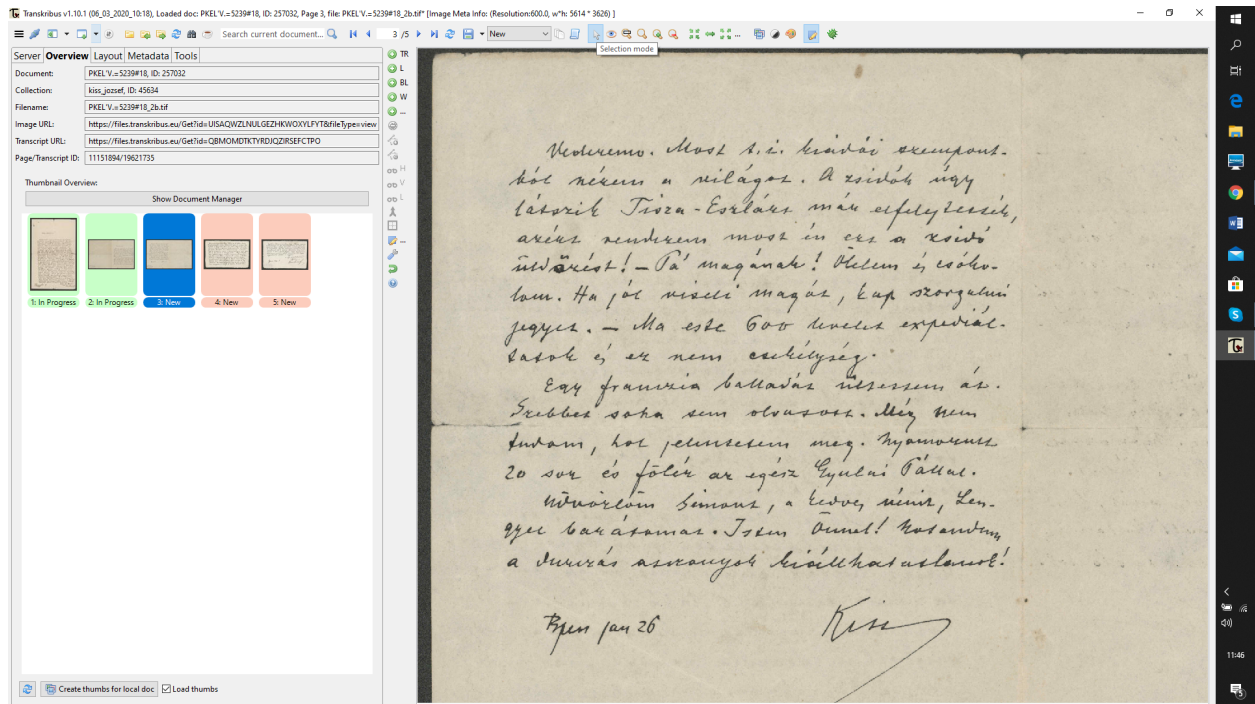 Transkribus v1.10.1 (06_03_2020_10:18), Loaded doc: PKEL'V.=5239#18, ID: 257032, Page 3, file: PKEL'V.=5239#18_2b.tif* [Image Meta Info: (Resolution:600.0, w*h: 5614 * 3626) ]
Search current document... 3 /5 New
Selection mode
Server Overview Layout Metadata Tools
Document: PKEL'V.=5239#18, ID: 257032
Collection: kiss_jozsef, ID: 45634
Filename: PKEL'V.=5239#18_2b.tif
Image URL: https://files.transkribus.eu/Get?id=UISAQWZLNULGEZHKWOXYLFYT&fileType=view
Transcript URL: https://files.transkribus.eu/Get?id=QBMOMDTKTYRDJQZIRSEFCTPO
Page/Transcript ID: 11151894/19621735
Thumbnail Overview:
Show Document Manager
1: In Progress 2: In Progress 3: New 4: New 5: New
Create thumbs for local doc Load thumbs
TR
L
BL
W
...
H
V
L
Vederemo. Most t.i. kiadói szempont-
ból nézem a világot. A zsidók úgy
látszik Tisza-Eszlárt már elfelejtették,
azért rendezem most én ezt a zsidó
üldözést! – Pá magának! Ölelem és csóko-
lom. Ha jól viseli magát, kap szorgalmi
jegyet. – Ma este 600 levelet expediál-
tatok és ez nem csekélység.
Egy franczia balladát ültettem át.
Szebbet soha sem olvasott. Még nem
tudom, hol jelentetem meg. Nyomorult
20 sor és fölér az egész Gyulai Pállal.
Üdvözlöm Simont, a kedves nénit, Len-
gyel barátomat. Isten Önnel!
a durczás asszonyok kiállhatatlanok!
Bpen jan 26 Kiss
11:46